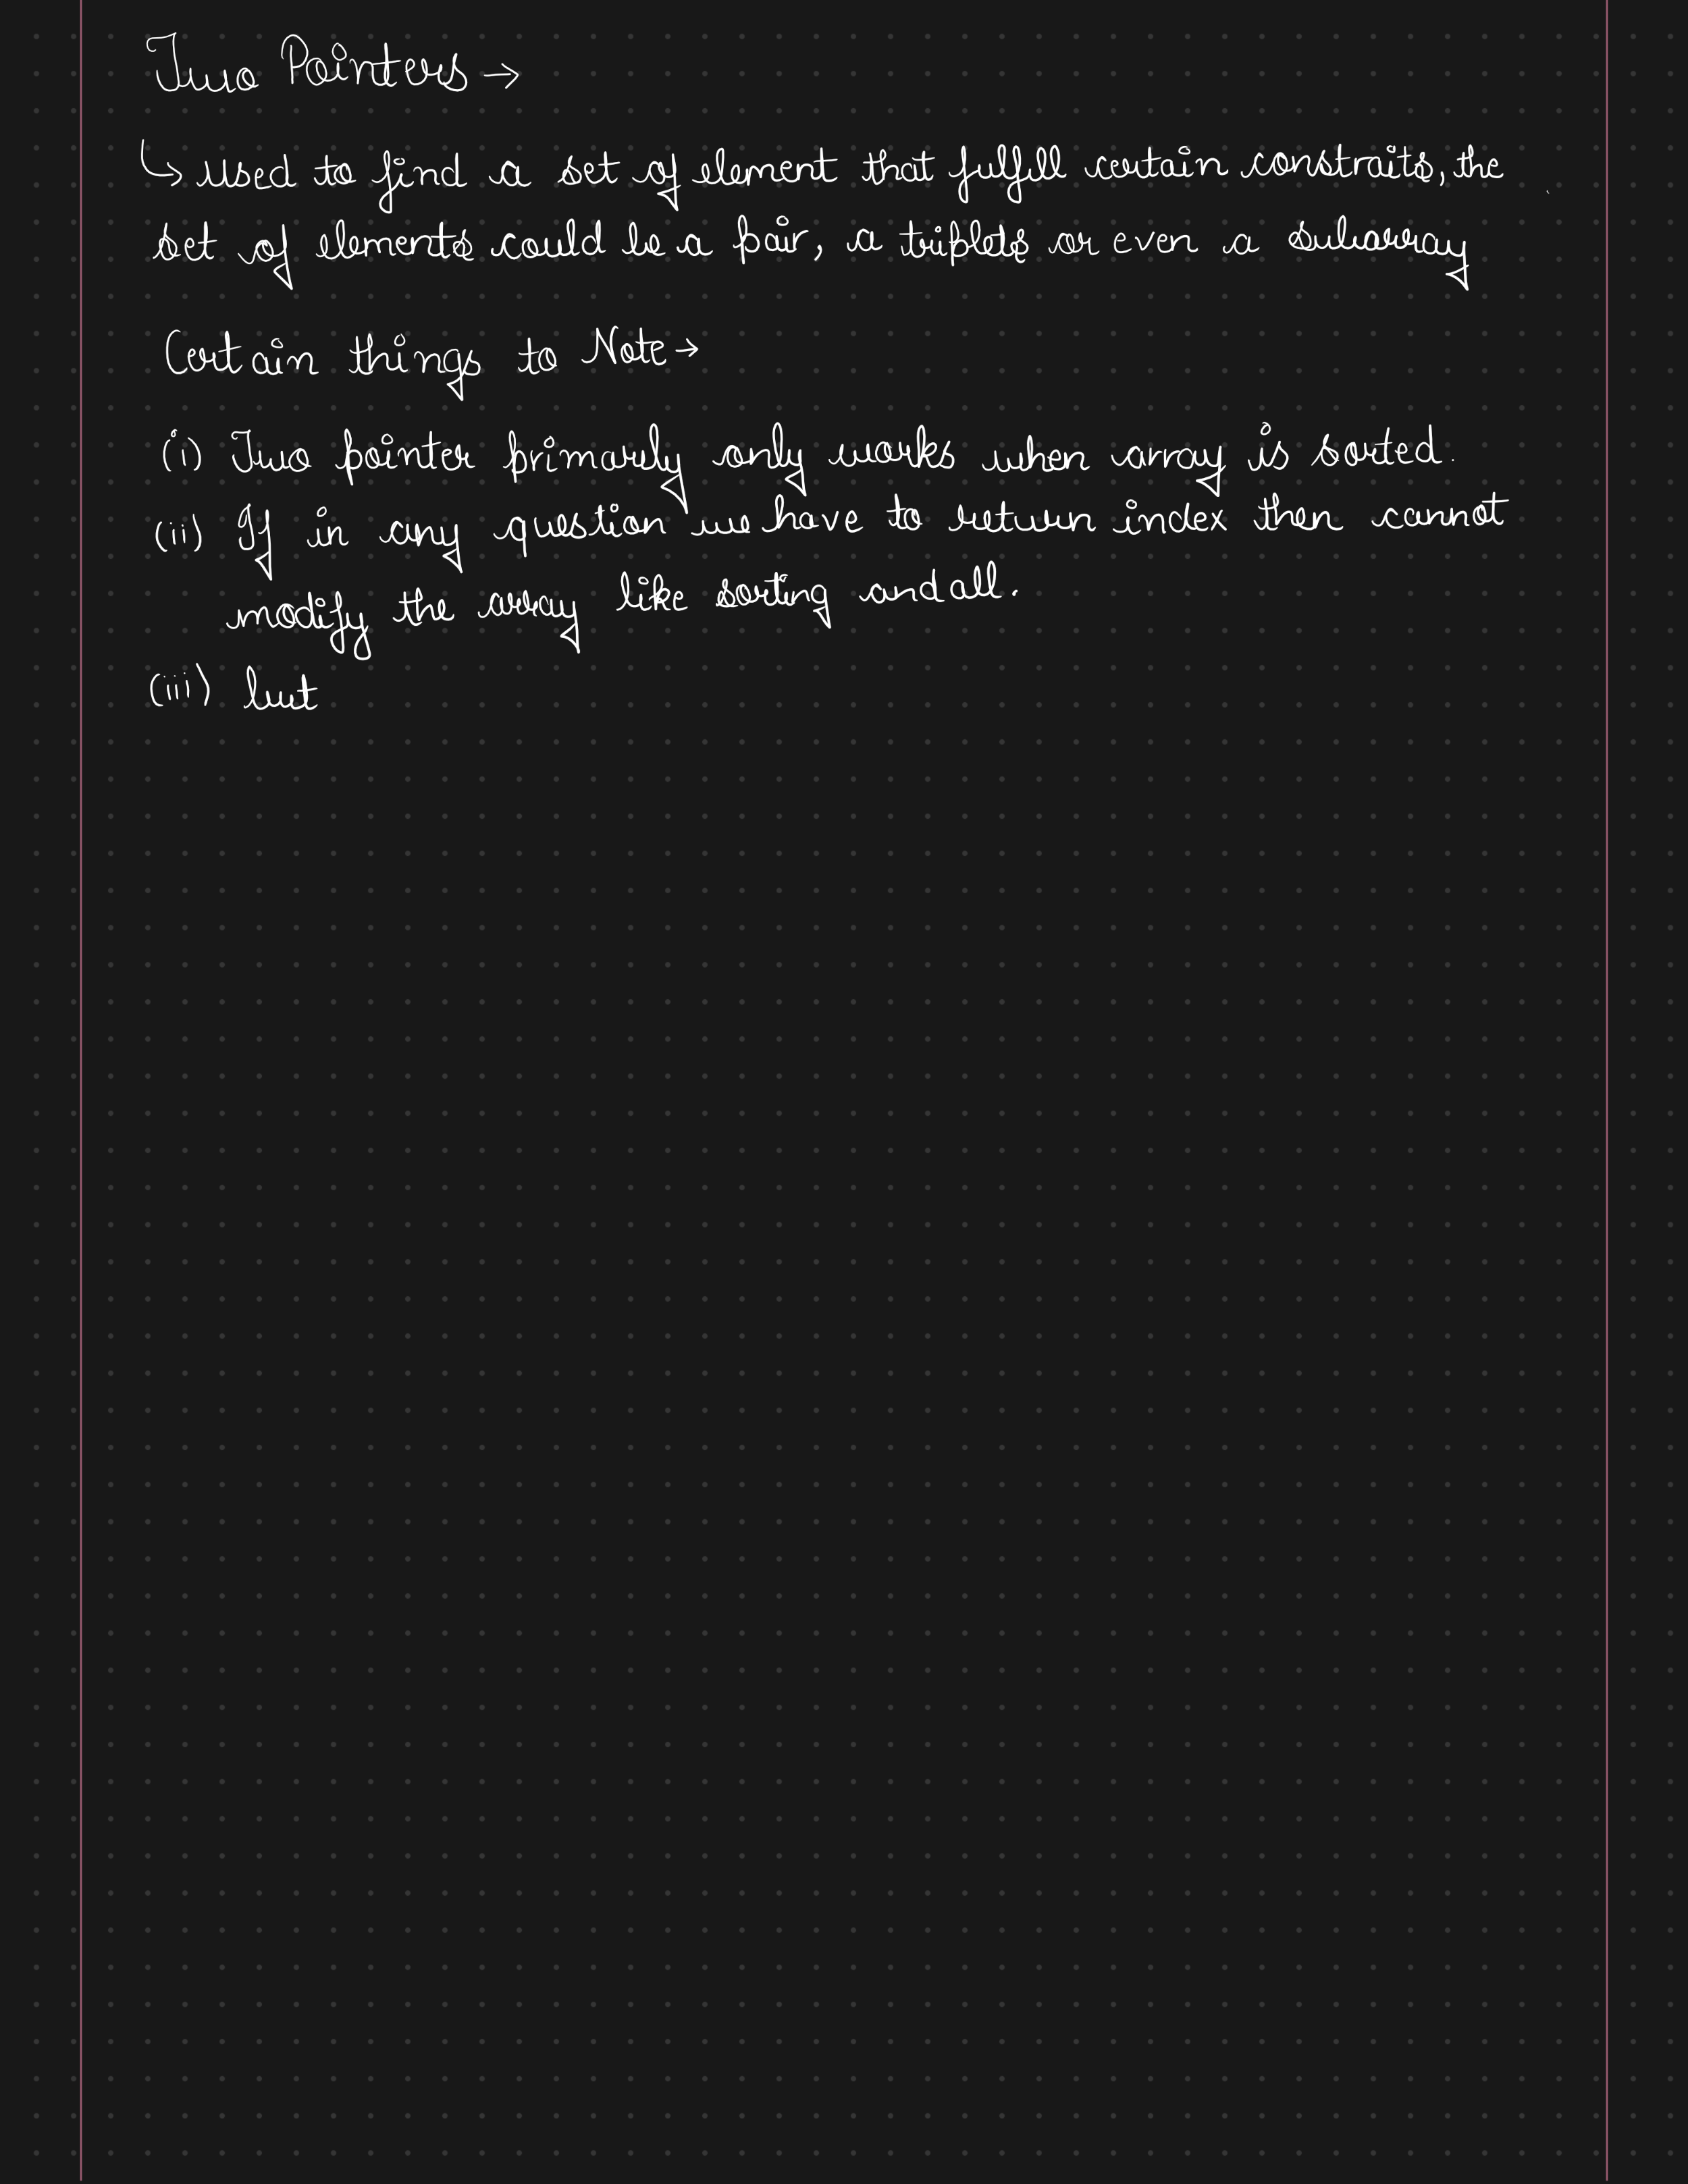 Two Pointers →
↳ used to find a set of element that fulfill certain constraits, the
set of elements could be a pair, a triplets or even a subarray
Certain things to Note →
(i) Two pointer primarily only works when array is sorted.
(ii) If in any question we have to return index then cannot
modify the array like sorting and all.
(iii) but